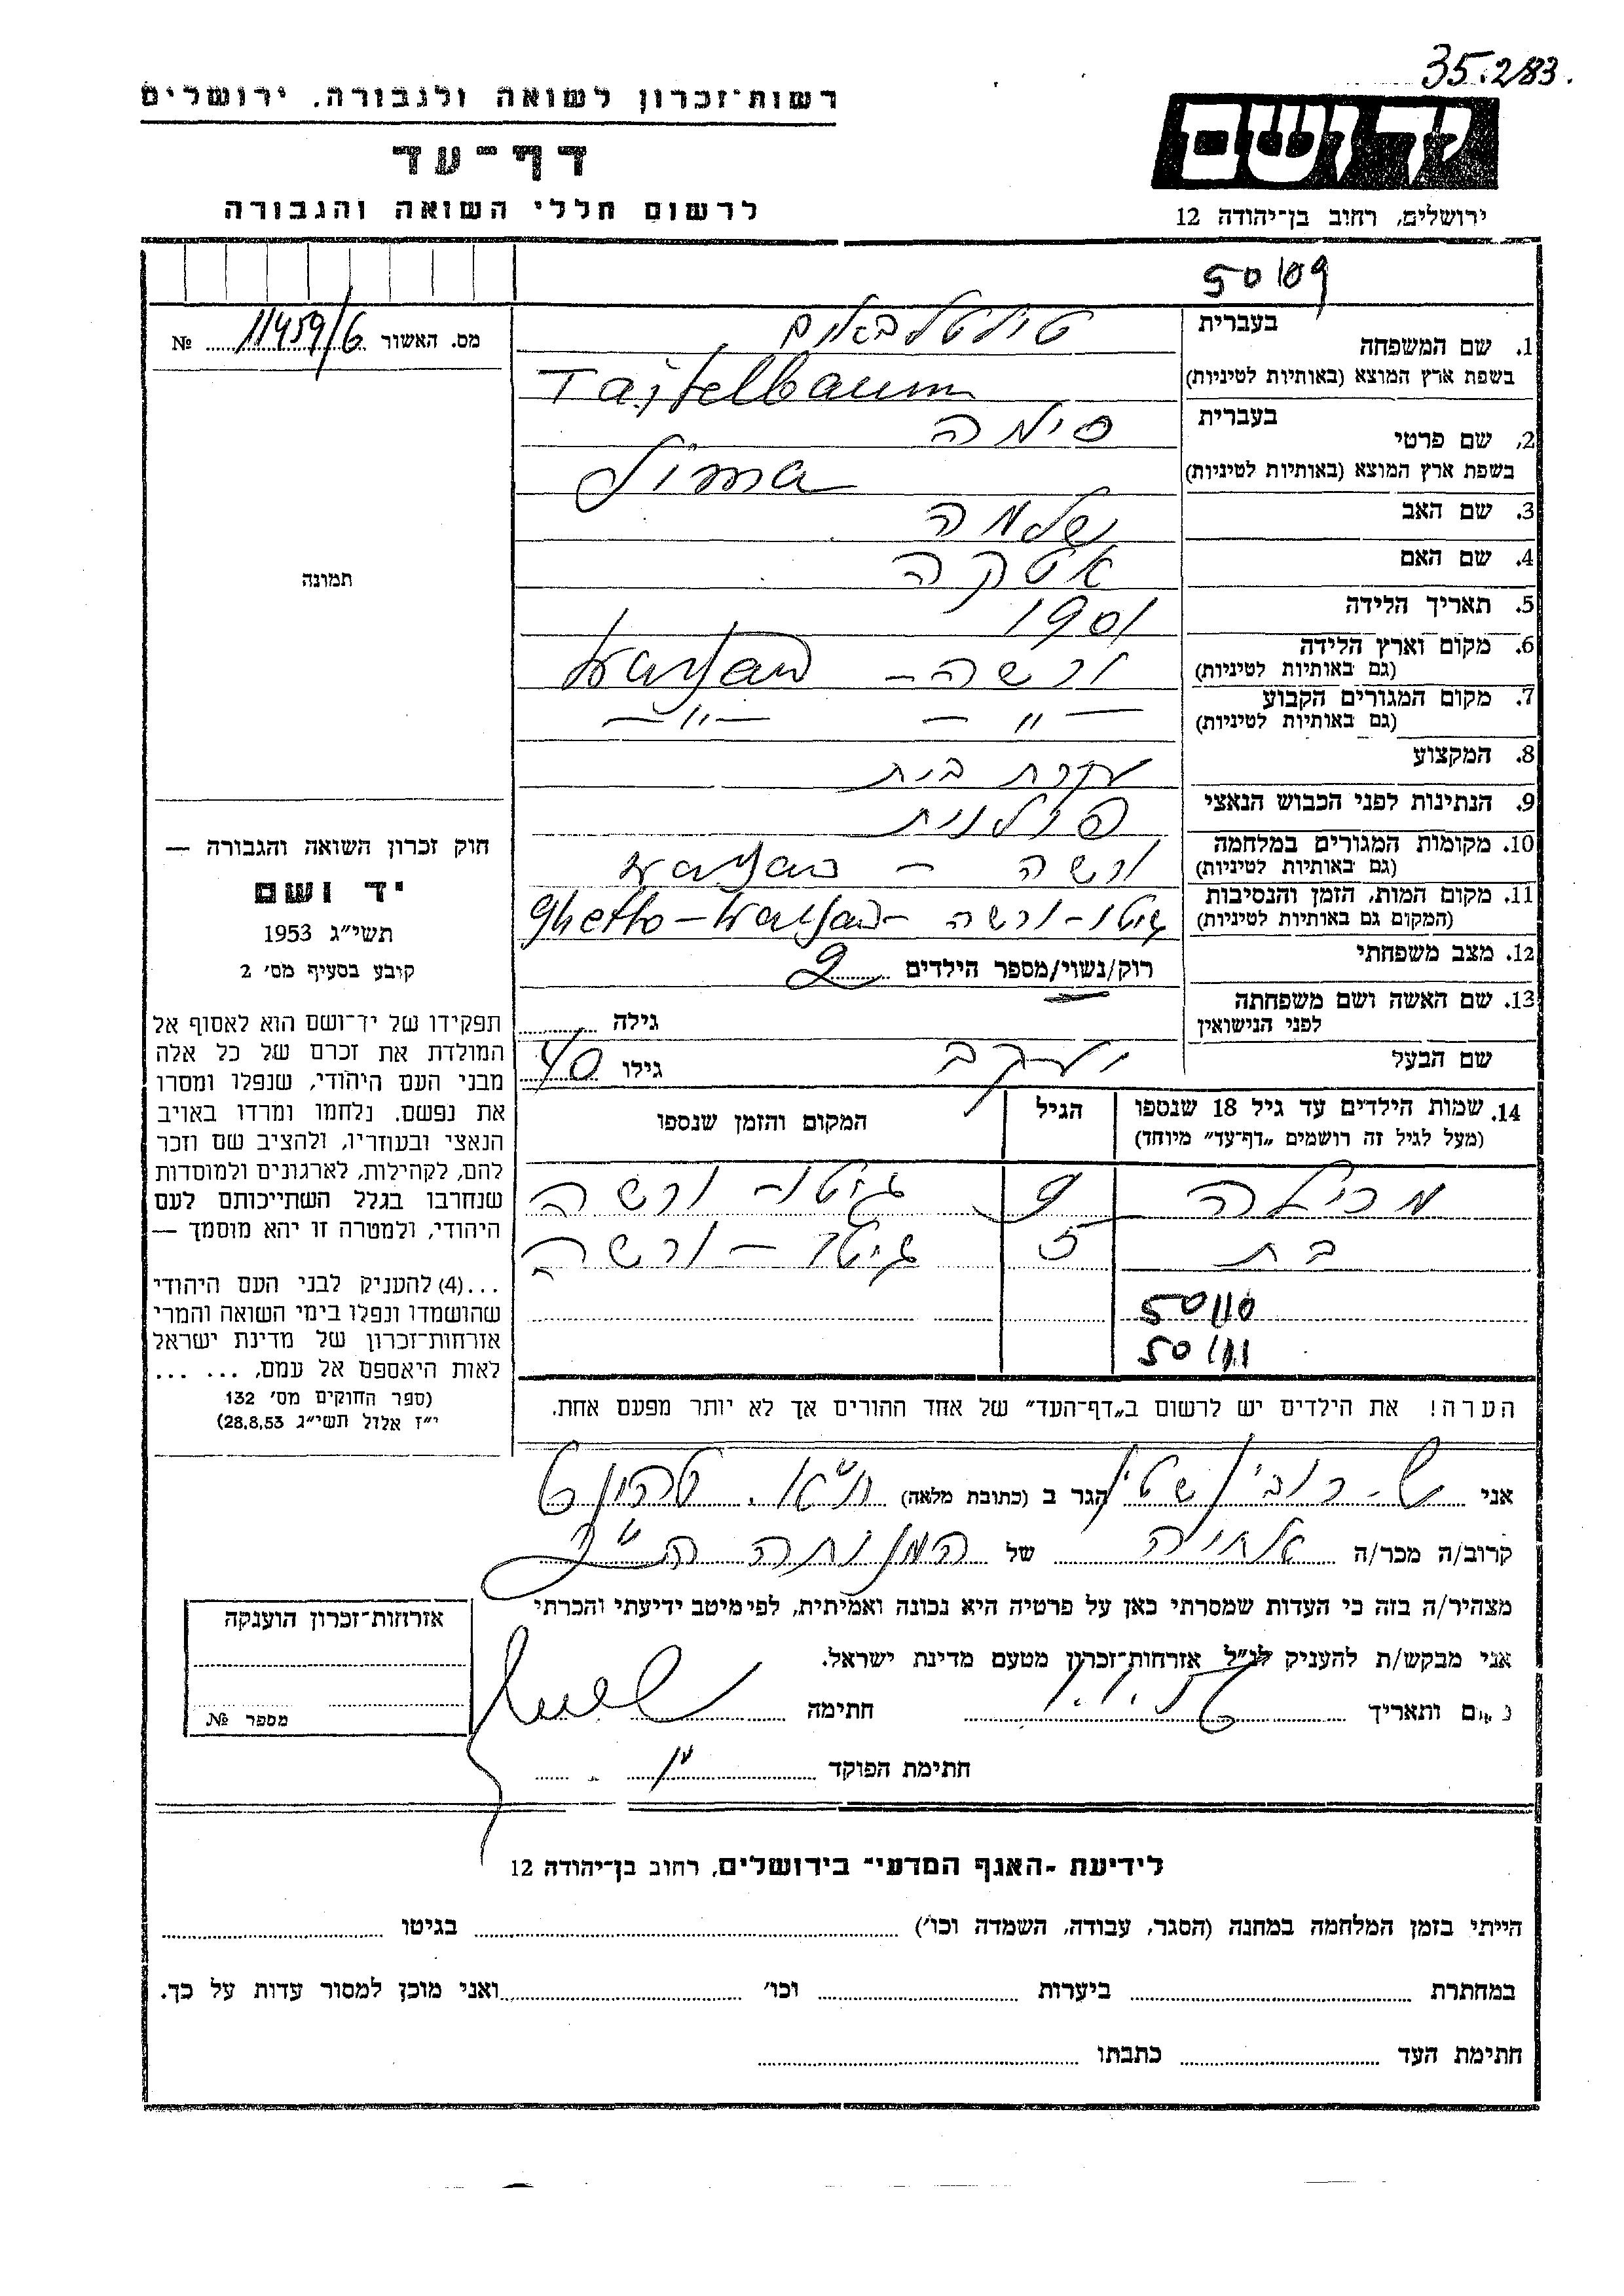 35.2/83.
רשות־זכרון לשואה ולגבורה, ירושלים
יד ושם
דף־עד
לרשום חללי השואה והגבורה
ירושלים, רחוב בן־יהודה 12
50109
מס. האשור 11459/6 №
1. שם המשפחה
בעברית טייטלבאום
בשפת ארץ המוצא (באותיות לטיניות) Tajtelbaum
2. שם פרטי
בעברית סימה
בשפת ארץ המוצא (באותיות לטיניות) Sima
3. שם האב שלמה
4. שם האם אטקה
5. תאריך הלידה 1901
6. מקום וארץ הלידה ורשה –
(גם באותיות לטיניות)
7. מקום המגורים הקבוע – " – – " –
(גם באותיות לטיניות)
8. המקצוע עקרת בית
9. הנתינות לפני הכבוש הנאצי פולנית
10. מקומות המגורים במלחמה ורשה –
(גם באותיות לטיניות)
11. מקום המות, הזמן והנסיבות גיטו - ורשה – Ghetto –
(המקום גם באותיות לטיניות)
12. מצב משפחתי רוק/נשוי/מספר הילדים 2
13. שם האשה ושם משפחתה
לפני הנישואין גילה
שם הבעל יעקב גילו 40
14. שמות הילדים עד גיל 18 שנספו הגיל המקום והזמן שנספו
(מעל לגיל זה רושמים „דף־עד” מיוחד)
9 גיטו - ורשה
בת 5 גיטו – ורשה
50110
50111
הערה! את הילדים יש לרשום ב„דף־העד” של אחד ההורים אך לא יותר מפעם אחת.
תמונה
חוק זכרון השואה והגבורה —
יד ושם
תשי״ג 1953
קובע בסעיף מס׳ 2
תפקידו של יד־ושם הוא לאסוף אל
המולדת את זכרם של כל אלה
מבני העם היהודי, שנפלו ומסרו
את נפשם. נלחמו ומרדו באויב
הנאצי ובעוזריו, ולהציב שם וזכר
להם, לקהילות, לארגונים ולמוסדות
שנחרבו בגלל השתייכותם לעם
היהודי, ולמטרה זו יהא מוסמך —
...(4) להעניק לבני העם היהודי
שהושמדו ונפלו בימי השואה והמרי
אזרחות־זכרון של מדינת ישראל
לאות היאספם אל עמם, ... ...
(ספר החוקים מס׳ 132
י״ז אלול תשי״ג 28.8.53)
אני ש. רובינשטיין הגר ב (כתובת מלאה) ת״א.
קרוב/ה מכר/ה אחיה של המנוחה הנ״ל
מצהיר/ה בזה כי העדות שמסרתי כאן על פרטיה היא נכונה ואמיתית, לפי מיטב ידיעתי והכרתי
אני מבקש/ת להעניק לנ״ל אזרחות־זכרון מטעם מדינת ישראל.
ותאריך חתימה
חתימת הפוקד
אזרחות־זכרון הוענקה
מספר №
לידיעת ־האגף המדעי־ בירושלים, רחוב בן־יהודה 12
הייתי בזמן המלחמה במחנה (הסגר, עבודה, השמדה וכו׳) בגיטו
במחתרת ביערות וכו׳ ואני מוכן למסור עדות על כך.
חתימת העד כתבתו